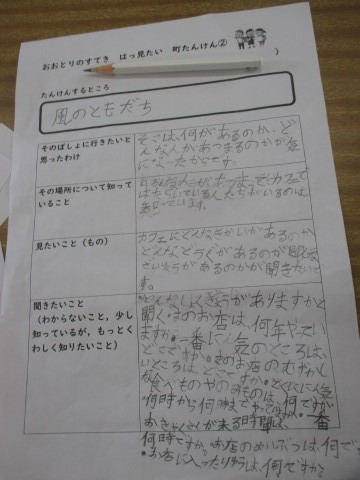 おおとりのすてき はっ見たい 町たんけん②
)
たんけんするところ
風のともだち
そのばしょに行きたいと
思ったわけ
そこは、何があるのか、ど
んな人があつまるのかが気
になったからです。
その場所について知って
いること
カフェで
はたらいている人たちがいるのは
知っています。
見たいこと（もの）
カフェにどんなきかいがあるのか
どんなどうぐがあるのが
があるのかが聞きたいで
す。
聞きたいこと
（わからないこと，少し
知っているが，もっとく
わしく知りたいこと）
がありますかと
聞く・まのお店は、何年やってい
ますか。一番に人気のところは、
どこですか。
いところは、どこですか。とくに人気
な食べものやのみものは、何ですか。
何時から何時まで
おきゃくさんが来る時間は、一番
何時ですか。お店のめいぶつは、何で
・お店に入ったりゆうは、何ですか。